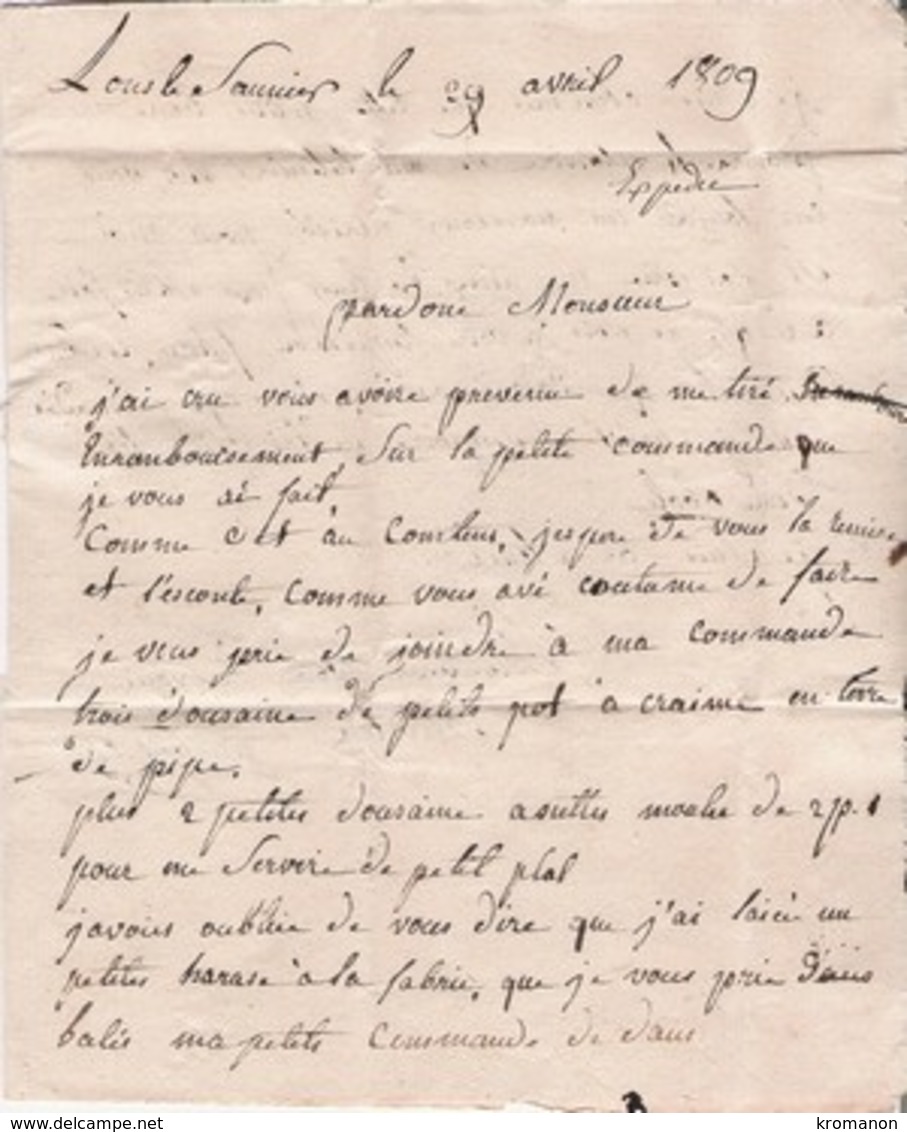 Lons le Saunier le 29 avril 1809
Expédié
pardone Monsieur
j'ai cru vous avoire prevenu de me tiré
Enranboursement Sur la petite commande que
je vous ai fait
Comme c et au Comtens, jespre de vous la remise
et l'esconte, Comme vous avé coutume de faire
je vous prie de joindre à ma commande
trois dousaine de petits pot a craime en terre
de pipe,
plus 2 petites dousaine asiettes moule de 2 p.
pour me Servire de petit plat
javois oublié de vous dire que j'ai laicé un
petites harase à la fabric, que je vous prie
balés ma petits Commande de dans
delcampe.net
kromanon